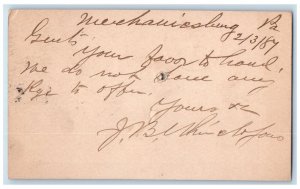 Mechanicsburg Pa
2/3/87
Gents
Your favor to hand.
We do not have any
Rye to offer.
Yours &c
J. B.